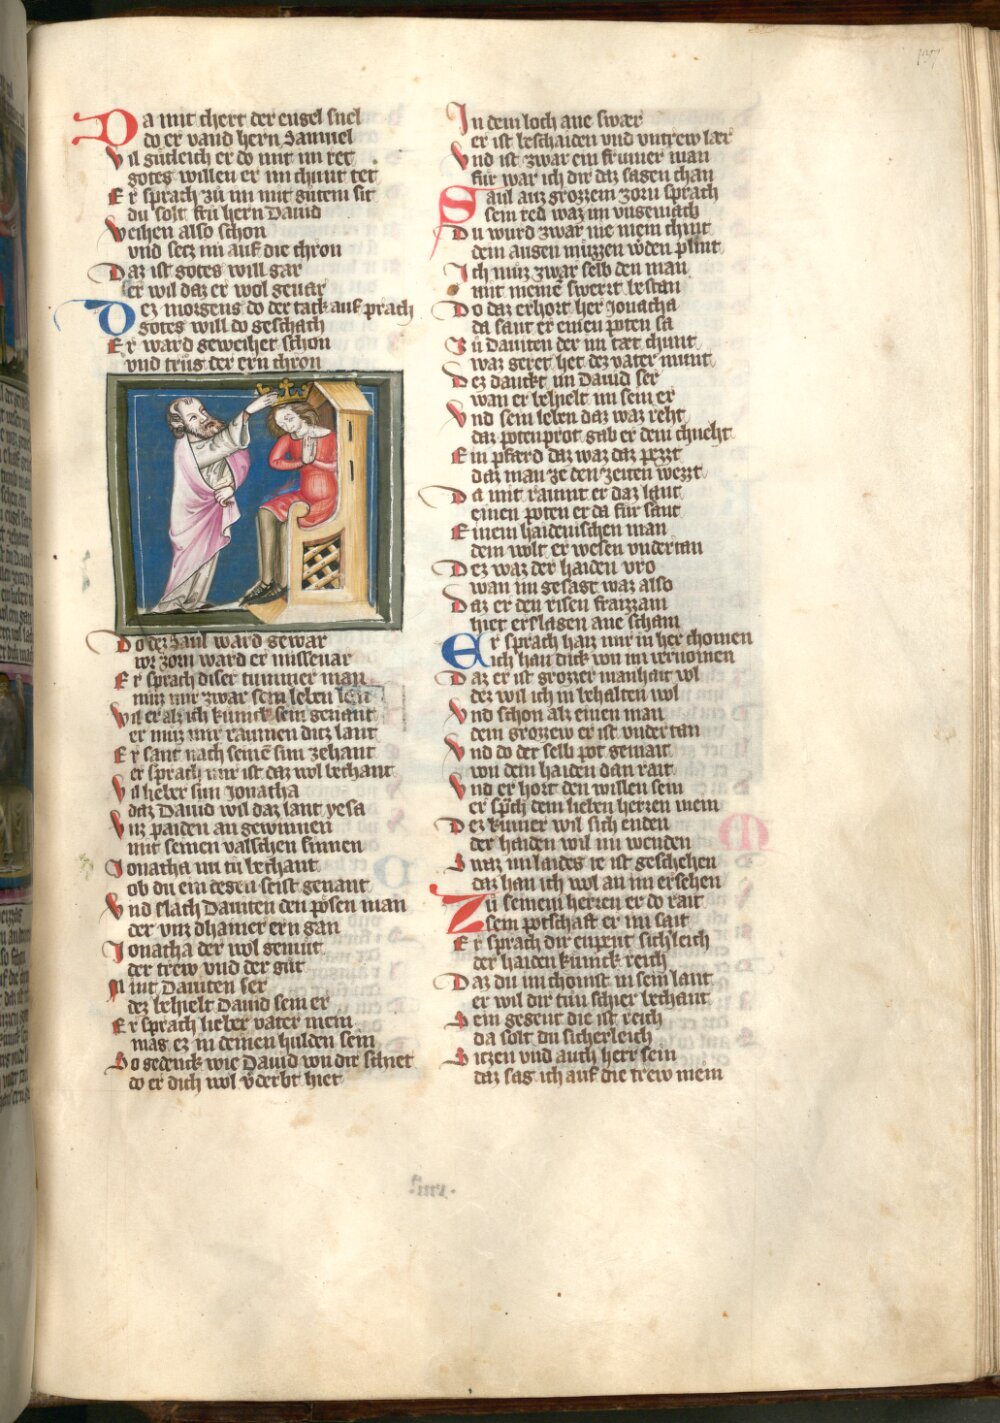 137
Da mit chert der engel snel
do er vand hern Samuel
Vil gůtleich er do mit im ret
gotes willen er im chunt tet
Er sprach zů im mit gůtem sit
du solt hern Dauid
Weihen also schon
vnd secz im auf die chron
Daz ist gotes will gar
er wil daz er wol geuar
Dez morgens do der tack auf prach
gotes will do geschach
Er ward geweihet schon
vnd trůg der ern chron
Do dez Saul ward gewar
vor zorn ward er missevar
Er sprach diser tummer man
můz mir zwar sein leben lan
Wil er alz ich künick sein genant
er můz mir raumen ditz lant
Er sant nach seinē sun zehant
er sprach mir ist daz wol bechant
Vil lieber sun Jonatha
daz Dauid wil daz lant yesa
Vnz paiden an gewinnen
mit seinen valschen sinnen
Jonatha nu tů bechant
ob du ein degen seist genant
Vnd slach Dauiten den pösen man
der vnz dhainer ern gan
Jonatha der wol gemůt
der trew vnd der gůt
Mint Dauiten ser
dez behielt Dauid sein er
Er sprach lieber vater mein
mag ez in deinen hulden sein
So gedenck wie Dauid von dir schiet
do er dich wol v̄derbt hiet
In dem loch ane swær
er ist beschaiden vnd vntrew lær
Vnd ist zwar ein frumer man
für war ich dir daz sagen chan
Saul auz grozzem zorn sprach
sein red waz im vngemach
Du wurd zwar nie mein chint
dein augen müzzen w̄den plint
Ich můz zwar selb den man
mit meinē swertt bestan
Do daz erhort her Jonatha
da sant er einen poten sa
Zů Dauiten der im tæt chunt
waz geret het dez vater munt
Dez danckt im Dauid ser
wan er behielt im sein er
Vnd sein leben daz waz reht
daz potenprot gab er dem chneht
Ein pfærd daz waz daz pezzt
daz man ze den zeiten wezzt
Da mit raumt er daz lant
einen poten er da für sant
Einem haidenischen man
dem wolt er wesen vndertan
Dez waz der haiden vro
wan im gesagt waz also
Daz er den risen fraizzam
hiet erslagen ane scham
Er sprach haiz mir in her chomen
ich han dick von im vernomen
Daz er ist grozzer manhait vol
dez wil ich in behalten wol
Vnd schon alz einen man
dem grozzew er ist vndertan
Vnd do der selb pot gemait
von dem haiden dan rait
Vnd er hort den willen sein
er sp̄ch dem lieben herren mein
Dez kumer wil sich enden
der haiden wil im wenden
Swaz im laides ie ist geschehen
daz han ich wol an im ersehen
Zu seinem herren er do rait
sein potschaft er im sait
Er sprach dir enpeut sichleich
der haiden künick reich
Daz du im chomst in sein lant
er wil dir tun schier bechant
Sein gegent die ist reich
da solt du sicherleich
Sitzen vnd auch herr sein
daz sag ich auf die trew mein